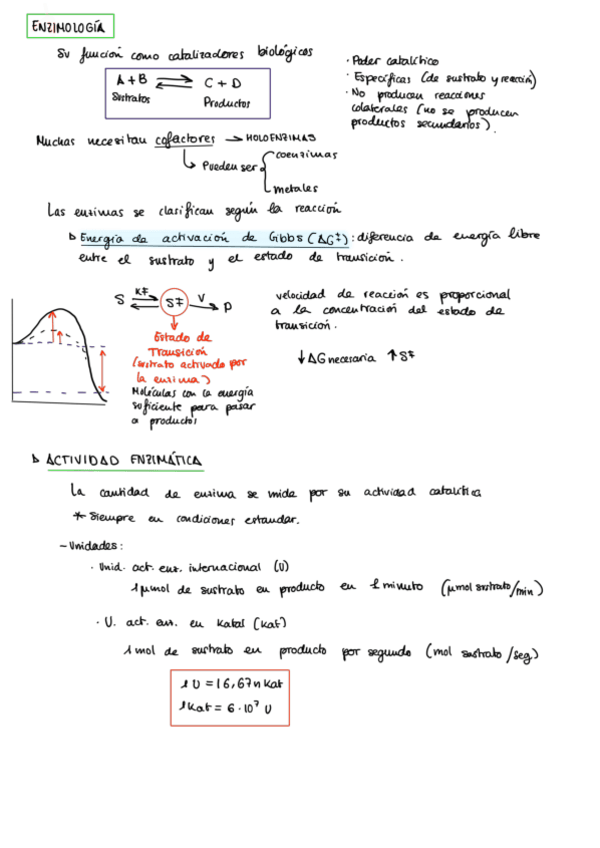 ENZIMOLOGÍA
Su función como catalizadores biológicos
A + B ⇌ C + D
Sustratos Productos
· Poder catalítico
· Específicas (de sustrato y reacción)
· No producen reacciones
colaterales (no se producen
productos secundarios).
Muchas necesitan cofactores → HOLOENZIMAS
↳ Pueden ser
coenzimas
metales
Las enzimas se clasifican según la reacción
▷ Energía de activación de Gibbs (ΔG‡): diferencia de energía libre
entre el sustrato y el estado de transición.
S ⇌ K‡ S‡ V → P
Estado de
Transición
(sustrato activado por
la enzima)
Moléculas con la energía
suficiente para pasar
a productos
velocidad de reacción es proporcional
a la concentración del estado de
transición.
↓ΔG necesaria ↑S‡
▷ ACTIVIDAD ENZIMÁTICA
La cantidad de enzima se mide por su actividad catalítica
* Siempre en condiciones estandar.
- Unidades:
· Unid. act. enz. internacional (U)
1 μmol de sustrato en producto en 1 minuto (μmol sustrato/min)
· U. act. enz. en Katal (Kat)
1 mol de sustrato en producto por segundo (mol sustrato/seg)
1 U = 16,67 n Kat
1 Kat = 6 · 10⁷ U